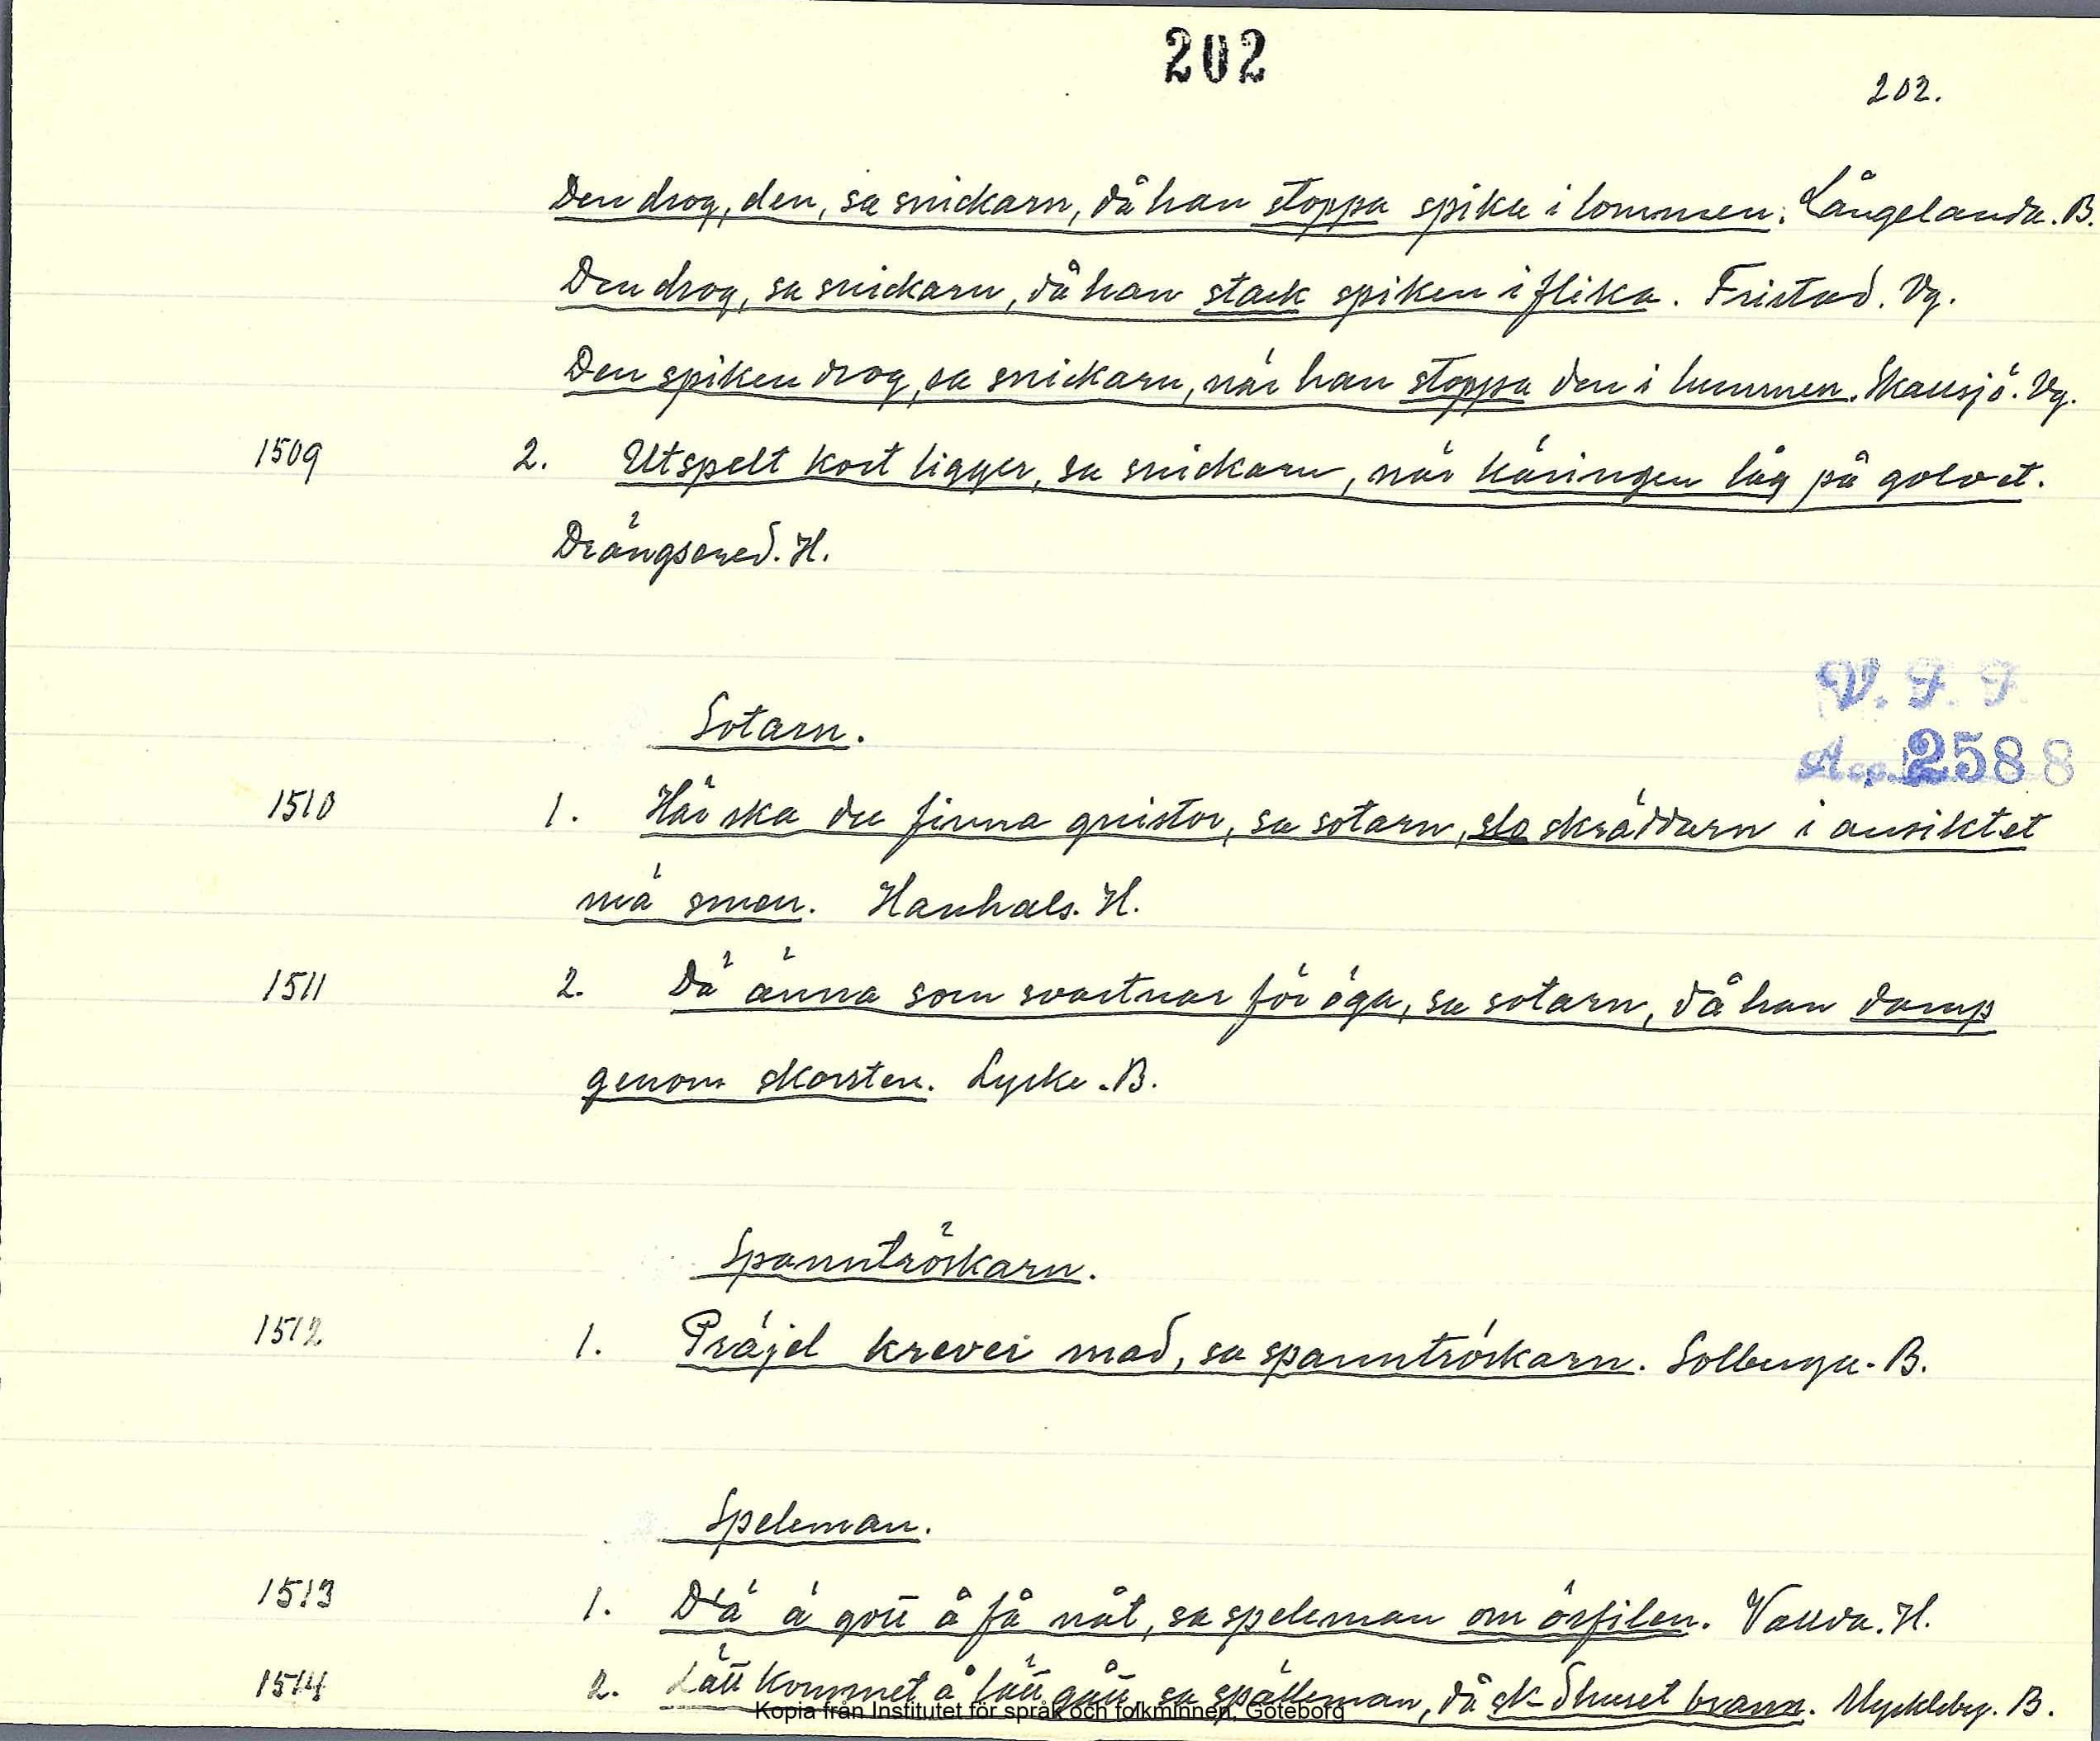 202
202.
Den drog, den, sa snickarn, då han stoppa spika i lommen. Långelanda. B.
Den drog, sa snickarn, då han stack spiken i flika. Fristad. Vg.
Den spiken drog, sa snickarn, när han stoppa den i lummen. Skallsjö. Vg.
1509 2. Utspelt kort ligger, sa snickarn, när käringen låg på golvet.
Drängsered. H.
V. F. F.
Sotarn.
Acc. 2588
1510 1. Här ska du finna gnistor, sa sotarn, slo skräddarn i ansiktet
mä smen. Hanhals. H.
1511 2. Dä änna som svartnar för öga, sa sotarn, då han damp
genom skorsten. Lycke. B.
Spanntröskarn.
1512 1. Präjel krever mad, sa spanntröskarn. Solberga. B.
Speleman.
1513 1. Dä ä gott å få nåt, sa speleman om örfilen. Valda. H.
1514 2. Lätt kommet å lätt gått, sa spälleman, då sk-dhuset brann. Myckleby. B.
Kopia från Institutet för språk och folkminnen, Göteborg